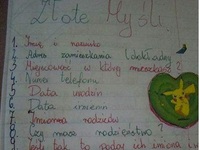 Złote Myśli
1. Imię i nazwisko
2. Adres zamieszkania (dokładny)
Miejscowość w której mieszkasz?
Numer telefonu
Data urodzin
Data imienin
Imiona rodziców
Czy masz rodzeństwo?
Jeśli tak to podaj ich imiona i